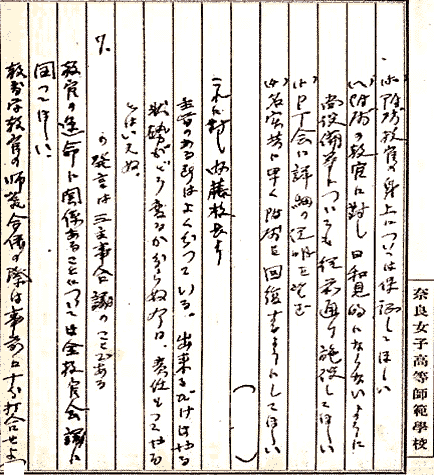 (ホ)附属教官の身上については保証してほしい
(ヘ)附属の教官に対し日和見的にならないように
尚設備等についても従前通り施設してほしい
(ト)PT会に詳細の説明を望む
(チ)名実共に早く附属を回復するようにしてほしい
これに対し 藤校長より
主旨のある所はよくわかっている。出来るだけはやる
状勢がどう変るかわからぬ今日、責任もってやる
とはいえぬ。
7.
の発言は三主事会議のことである
教官の運命に関係あることについては全教官会議に
図ってほしい
教官の 際は事前に 打合せよ
奈良女子高等師範學校